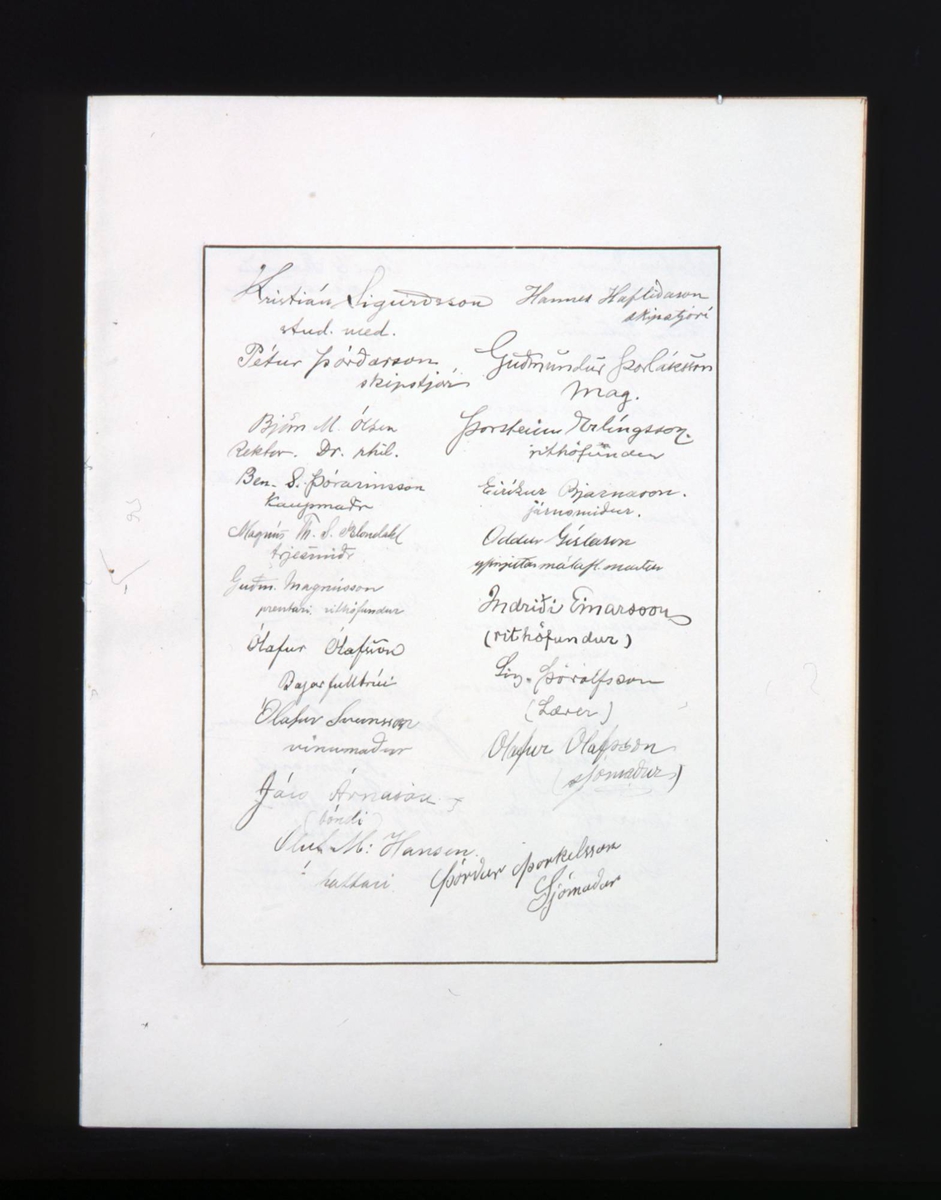 Kristián Sigurðsson
stud. med.
Pétur Þórðarson
skipstjóri
Björn M. Ólsen
Rektor. Dr. phil.
Ben. S. Þórarinsson
Kaupmaðr
Magnús Th. S. Blöndahl
trjesmiðr
Guðm. Magnússon
prentari, rithöfundur
Ólafur Ólafsson
Bæjarfulltrúi
Ólafur Sveinsson
vinnumaður
Jón Árnason
(bóndi)
M. Hansen
hattari
Hannes Hafliðason
skipstjóri
Guðmundur Þorláksson
Mag.
Þorsteinn Erlíngsson.
rithöfundur
Eiríkur Bjarnason.
járnsmiður.
Oddur Gíslason
Indriði Einarsson
(rithöfundur)
Sig. Þórólfsson
(Lærer)
Ólafur Ólafsson
(sjómaður)
Þórður Þorkelsson
Sjómaður